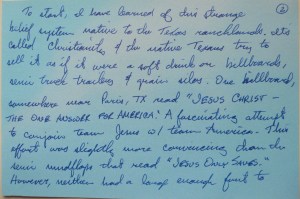 ②
To start, I have learned of this strange
belief system native to the Texas ranchlands. It's
called Christianity & the native Texans try to
sell it as if it were a soft drink on billboards,
semi truck trailers & grain silos. One billboard,
somewhere near Paris, TX read "JESUS CHRIST -
THE ONE ANSWER FOR AMERICA." A fascinating attempt
to conjoin team Jesus w/ team America. This
effort was slightly more convincing than the
semi mudflaps that read "JESUS ONLY SAVES."
However, neither had a large enough font to